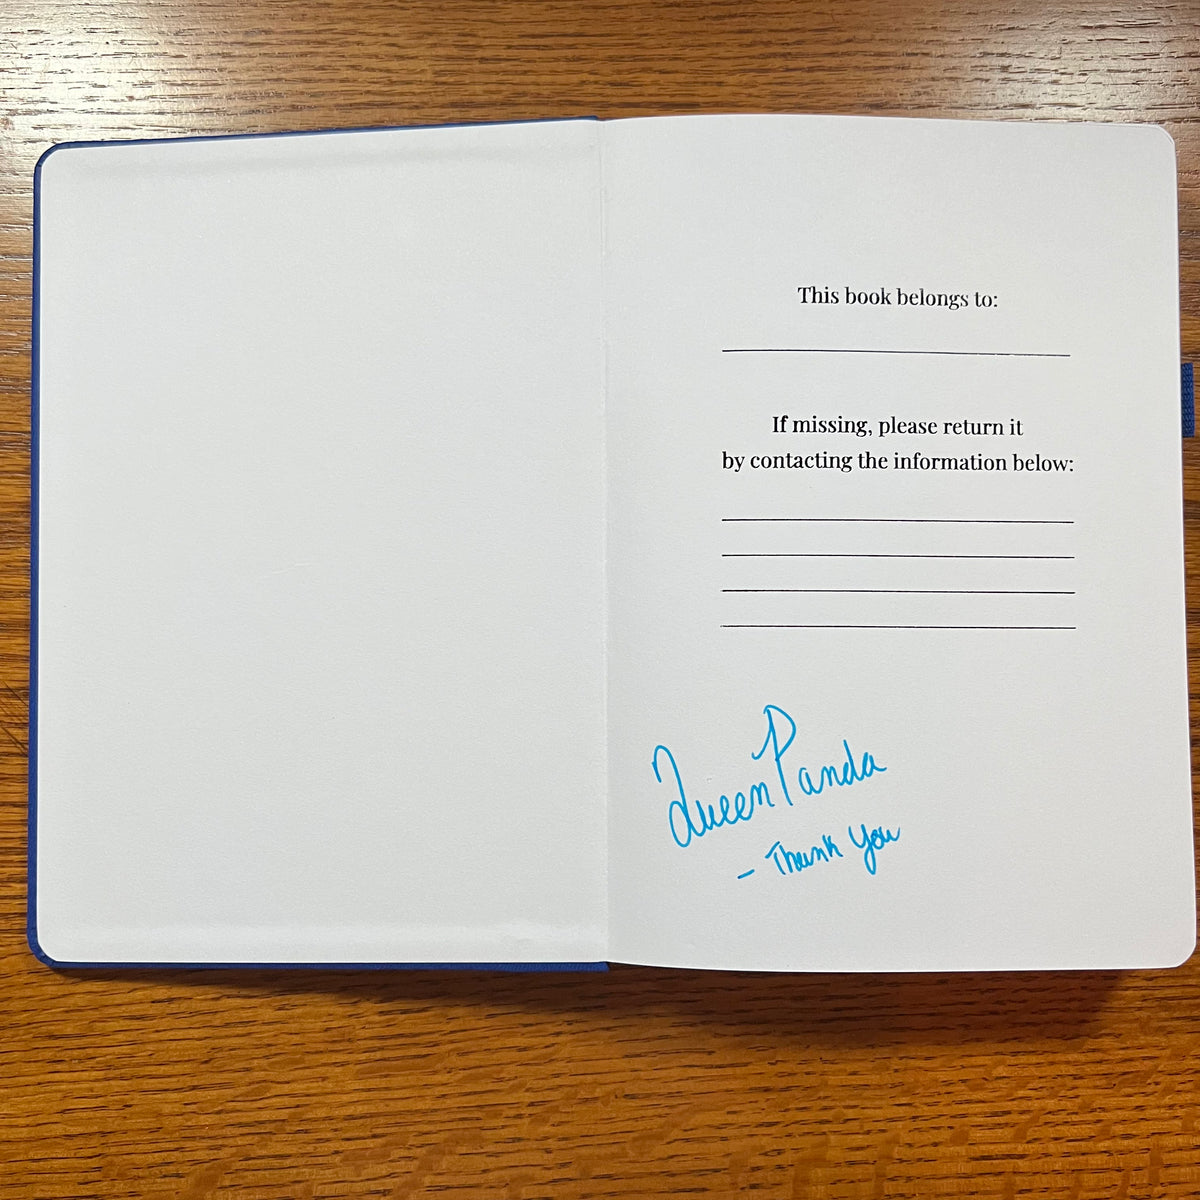 This book belongs to:
If missing, please return it
by contacting the information below:
Queen Panda
- Thank You